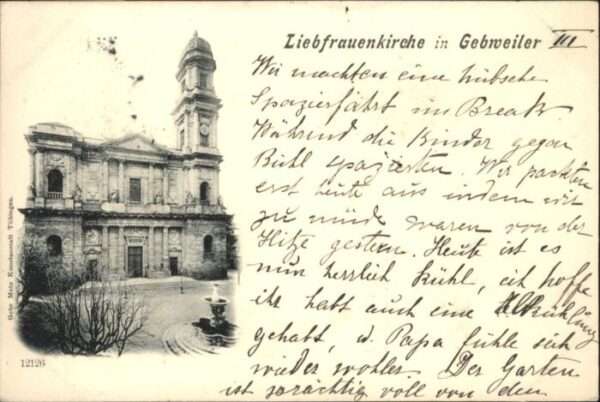 Liebfrauenkirche in Gebweiler III
Wir machten eine hübsche
Spazierfahrt im Break.
Während die Kinder gegen
Bühl spazierten. Wir packten
erst heute aus indem wir
zu müde waren von der
Hitze gestern. Heute ist es
nun herrlich kühl, ich hoffe
ihr habt auch eine Abkühlung
gehabt, u. Papa fühle sich
wieder wohler. Der Garten
ist prächtig voll von den
Gebr. Metz Kunstanstalt Tübingen.
12126